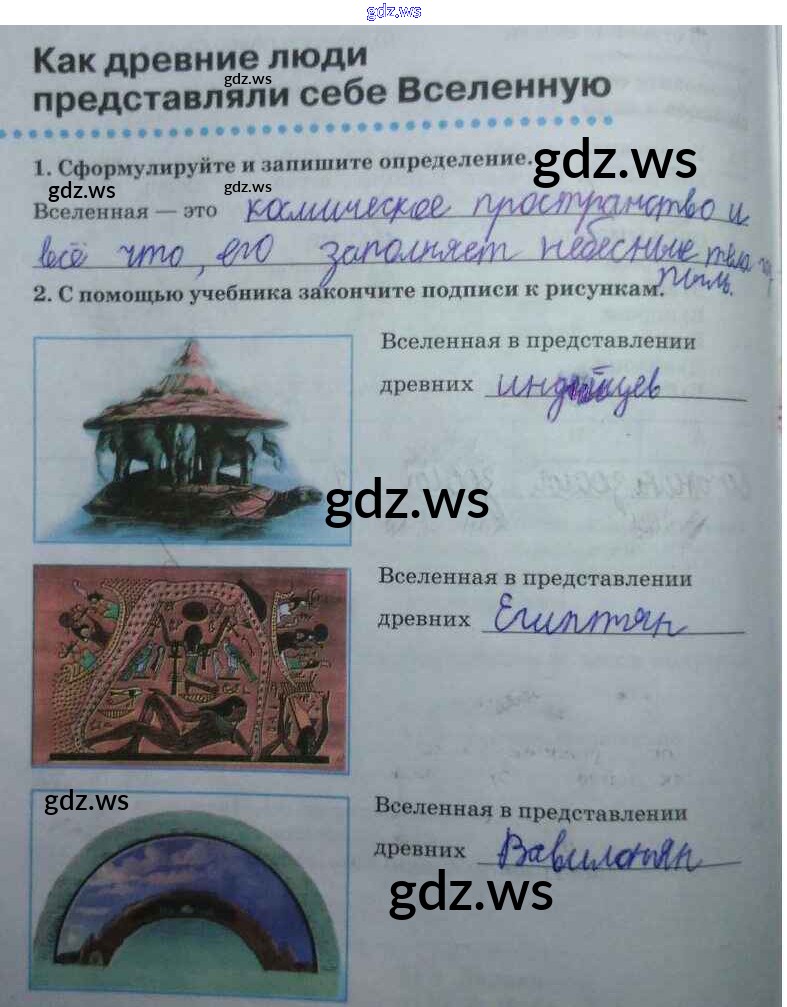 gdz.ws
Как древние люди
gdz.ws
представляли себе Вселенную
1. Сформулируйте и запишите определение.
gdz.ws
gdz.ws
gdz.ws
Вселенная — это космическое пространство и
всё что, его заполняет небесные тела
пыль.
2. С помощью учебника закончите подписи к рисункам.
Вселенная в представлении
древних индийцев
gdz.ws
Вселенная в представлении
древних Египтян
gdz.ws
Вселенная в представлении
древних Вавилонян
gdz.ws